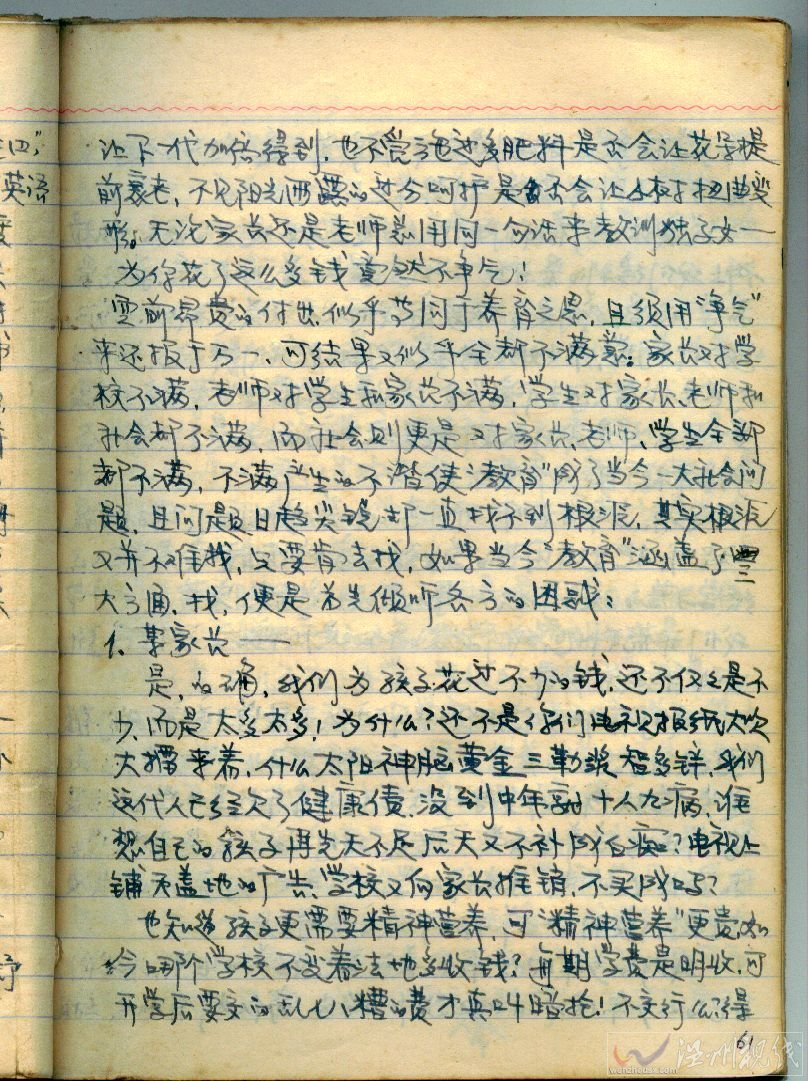 四，
英语
让下一代加倍得到，也不觉施过多肥料是否会让花早提
前衰老，不见阳光雨露的过分呵护是否会让小树扭曲变
形。无论家长还是老师总用同一句话来教训独子女一
为你花了这么多钱竟然不争气！
空前昂贵的付出，似乎等同于养育之恩，且须用"争气"
来还报于万一，可结果又似乎全都不满意。家长对学
校不满，老师对学生和家长不满，学生对家长、老师和
社会都不满，而社会则更是对家长、老师、学生全部
都不满，不满产生的不谐使"教育"成了当今一大社会问
题，且问题日趋尖锐却一直找不到根源，其实根源
又并不难找，只要肯去找，如果当今"教育"涵盖了三
大方面，找，便是首先倾听各方的困惑：
1. 某家长——
是，的确，我们为孩子花过不少的钱，还不仅仅是不
少，而是太多太多！为什么？还不是你们电视报纸大吹
大擂来着，什么太阳神脑黄金三勒浆智多鲜，我们
这代人已经欠了健康债，没到中年就十人九病，谁
想自己的孩子再先天不足后天又不补成白痴？电视上
铺天盖地的广告，学校又向家长推销，不买成吗？
也知道孩子更需要精神营养，可"精神营养"更贵，如
今哪个学校不变着法地多收钱？每期学费是明收，可
开学后要交的乱七八糟的费才真叫暗抢！不交行么？得
61
温州视线
wenzhousx.com